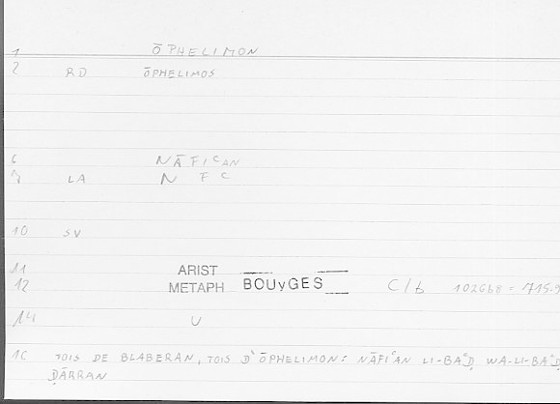 1 ŌPHELIMON
2 RD ŌPHELIMOS
6 NĀFIʿAN
LA N F ʿ
10 SV
11 ARIST
12 METAPH BOUyGES C/b
14 U
16 TOIS DE BLABERAN, TOIS D'ŌPHELIMON: NĀFIʿAN LI-BAʿḌ WA-LI-BAʿḌ
ḌĀRRAN